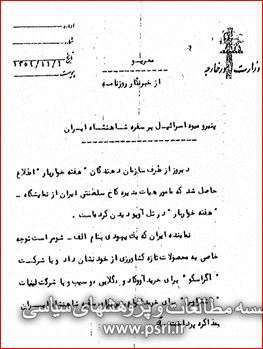 اداره
شماره
تاریخ ۱۳۵۲/۱۱/۱
پیوست
وزارت امور خارجه
محرمانه
از خبرنگار روزنامه
پنیر و میوه اسرائیل بر سفره شاهنشاه ایران
دیروز از طرف سازمان دهندگان "هفته خواربار" اطلاع
حاصل شد که مامور هیات مدیره کاخ سلطنتی ایران از نمایشگاه
"هفته خواربار" در تل آویو دیدن کرده است.
نماینده ایران که یک یهودی بنام الف - شومر است توجه
خاصی به محصولات تازه کشاورزی از خود نشان داد و با شرکت
"اگراسکو" برای خرید آووکادو و گلابی و سیب و با شرکت لبنیات
برای خرید شاهنشاه ایران
مذاکره پرداخت
موسسه مطالعات و پژوهشهای سیاسی
www.psri.ir